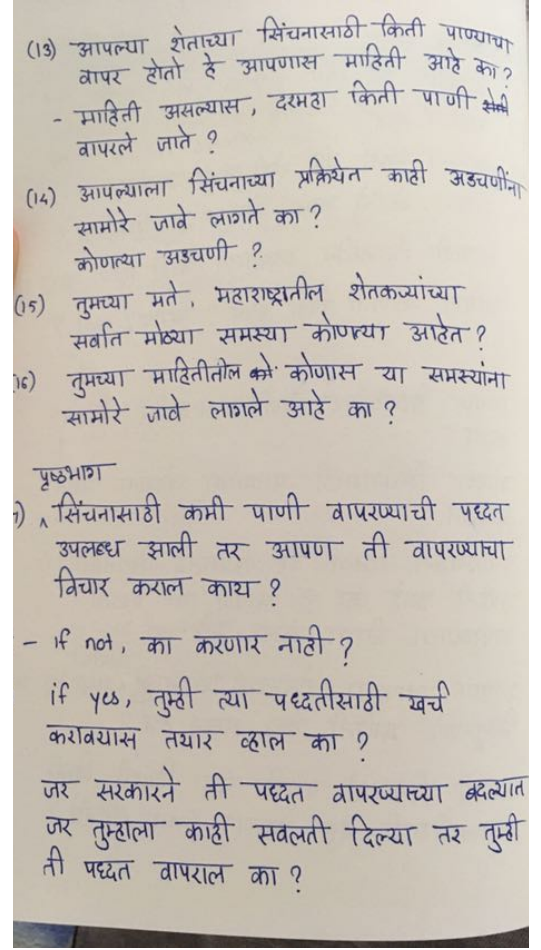 (13) आपल्या शेताच्या सिंचनासाठी किती पाण्याचा
वापर होतो हे आपणास माहिती आहे का?
- माहिती असल्यास, दरमहा किती पाणी
वापरले जाते ?
(14) आपल्याला सिंचनाच्या प्रक्रियेत काही अडचणींना
सामोरे जावे लागते का ?
कोणत्या अडचणी ?
(15) तुमच्या मते, महाराष्ट्रातील शेतकऱ्यांच्या
सर्वात मोठ्या समस्या कोणत्या आहेत ?
16) तुमच्या माहितीतील को कोणास या समस्यांना
सामोरे जावे लागले आहे का ?
पृष्ठभाग
) ^ सिंचनासाठी कमी पाणी वापरण्याची पध्दत
उपलब्ध झाली तर आपण ती वापरण्याचा
विचार कराल काय ?
- if not, का करणार नाही ?
if yes, तुम्ही त्या पध्दतीसाठी खर्च
करावयास तयार व्हाल का ?
जर सरकारने ती पध्दत वापरण्याच्या बदल्यात
जर तुम्हाला काही सवलती दिल्या तर तुम्ही
ती पध्दत वापराल का ?